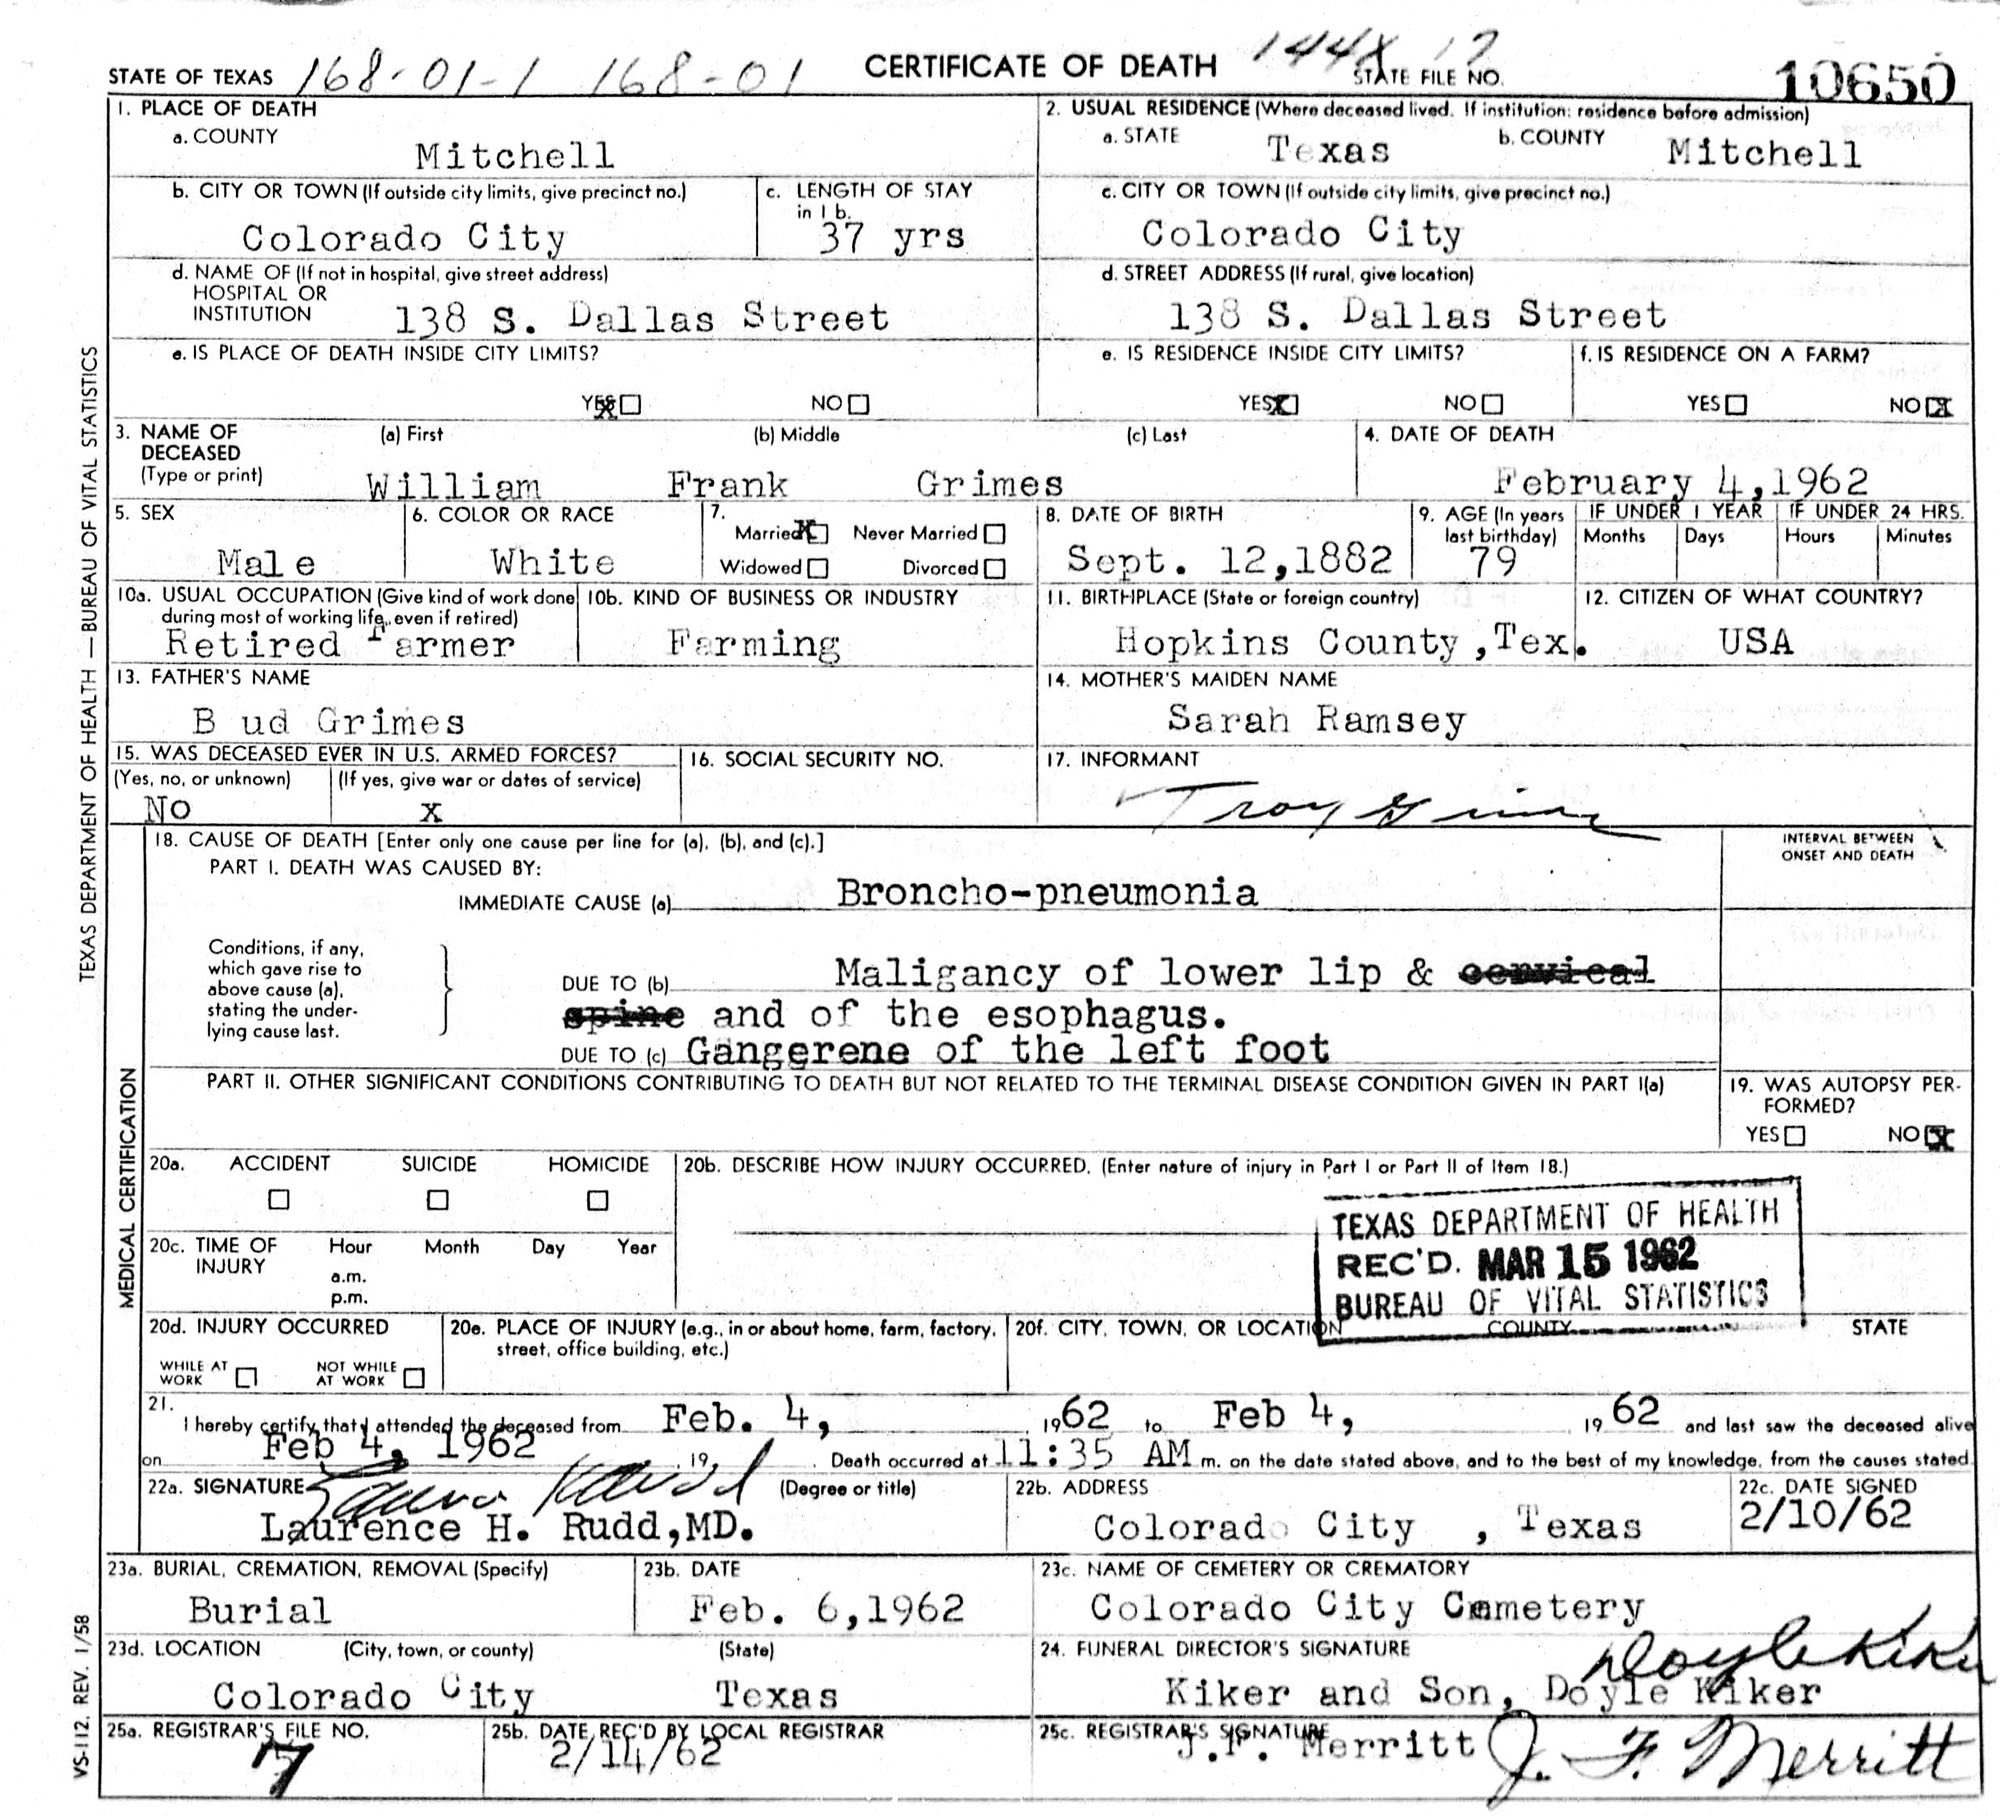 144X 17
STATE OF TEXAS 168-01-1 168-01 CERTIFICATE OF DEATH STATE FILE NO. 10650
1. PLACE OF DEATH
a. COUNTY
Mitchell
2. USUAL RESIDENCE (Where deceased lived. If institution: residence before admission)
a. STATE Texas b. COUNTY Mitchell
b. CITY OR TOWN (If outside city limits, give precinct no.)
Colorado City
c. LENGTH OF STAY
in 1 b.
37 yrs
c. CITY OR TOWN (If outside city limits, give precinct no.)
Colorado City
d. NAME OF (If not in hospital, give street address)
HOSPITAL OR
INSTITUTION 138 S. Dallas Street
d. STREET ADDRESS (If rural, give location)
138 S. Dallas Street
e. IS PLACE OF DEATH INSIDE CITY LIMITS?
YES X NO
e. IS RESIDENCE INSIDE CITY LIMITS?
YES X NO
f. IS RESIDENCE ON A FARM?
YES NO X
3. NAME OF
DECEASED
(Type or print)
(a) First (b) Middle (c) Last
William Frank Grimes
4. DATE OF DEATH
February 4,1962
5. SEX
Male
6. COLOR OR RACE
White
7.
Married X Never Married
Widowed Divorced
8. DATE OF BIRTH
Sept. 12,1882
9. AGE (In years
last birthday)
79
IF UNDER 1 YEAR
Months Days
IF UNDER 24 HRS.
Hours Minutes
10a. USUAL OCCUPATION (Give kind of work done
during most of working life, even if retired)
Retired farmer
10b. KIND OF BUSINESS OR INDUSTRY
Farming
11. BIRTHPLACE (State or foreign country)
Hopkins County ,Tex.
12. CITIZEN OF WHAT COUNTRY?
USA
13. FATHER'S NAME
B ud Grimes
14. MOTHER'S MAIDEN NAME
Sarah Ramsey
15. WAS DECEASED EVER IN U.S. ARMED FORCES?
(Yes, no, or unknown) (If yes, give war or dates of service)
No X
16. SOCIAL SECURITY NO.
17. INFORMANT
Troy Grimes
18. CAUSE OF DEATH [Enter only one cause per line for (a), (b), and (c).]
INTERVAL BETWEEN
ONSET AND DEATH
PART I. DEATH WAS CAUSED BY:
IMMEDIATE CAUSE (a) Broncho-pneumonia
Conditions, if any,
which gave rise to
above cause (a),
stating the under-
lying cause last.
DUE TO (b) Maligancy of lower lip & cervical
spine and of the esophagus.
DUE TO (c) Gangerene of the left foot
PART II. OTHER SIGNIFICANT CONDITIONS CONTRIBUTING TO DEATH BUT NOT RELATED TO THE TERMINAL DISEASE CONDITION GIVEN IN PART I(a)
19. WAS AUTOPSY PER-
FORMED?
YES NO X
20a. ACCIDENT SUICIDE HOMICIDE
20b. DESCRIBE HOW INJURY OCCURRED. (Enter nature of injury in Part I or Part II of Item 18.)
20c. TIME OF
INJURY
Hour Month Day Year
a.m.
p.m.
TEXAS DEPARTMENT OF HEALTH
REC'D. MAR 15 1962
BUREAU OF VITAL STATISTICS
20d. INJURY OCCURRED
WHILE AT
WORK
NOT WHILE
AT WORK
20e. PLACE OF INJURY (e.g., in or about home, farm, factory,
street, office building, etc.)
20f. CITY, TOWN, OR LOCATION COUNTY STATE
21.
I hereby certify that I attended the deceased from Feb. 4, 1962 to Feb 4, 1962 and last saw the deceased alive
on Feb 4, 1962, 19 . Death occurred at 11:35 AM m. on the date stated above, and to the best of my knowledge, from the causes stated.
22a. SIGNATURE (Degree or title)
Laurence H. Rudd,MD.
22b. ADDRESS
Colorado City , Texas
22c. DATE SIGNED
2/10/62
23a. BURIAL, CREMATION, REMOVAL (Specify)
Burial
23b. DATE
Feb. 6,1962
23c. NAME OF CEMETERY OR CREMATORY
Colorado City Cemetery
23d. LOCATION (City, town, or county) (State)
Colorado City Texas
24. FUNERAL DIRECTOR'S SIGNATURE
Doyle Kiker
Kiker and Son, Doyle Kiker
25a. REGISTRAR'S FILE NO.
7
25b. DATE REC'D BY LOCAL REGISTRAR
2/14/62
25c. REGISTRAR'S SIGNATURE
J.F. Merritt J. F. Merritt
TEXAS DEPARTMENT OF HEALTH — BUREAU OF VITAL STATISTICS
MEDICAL CERTIFICATION
VS-112. REV. 1/58